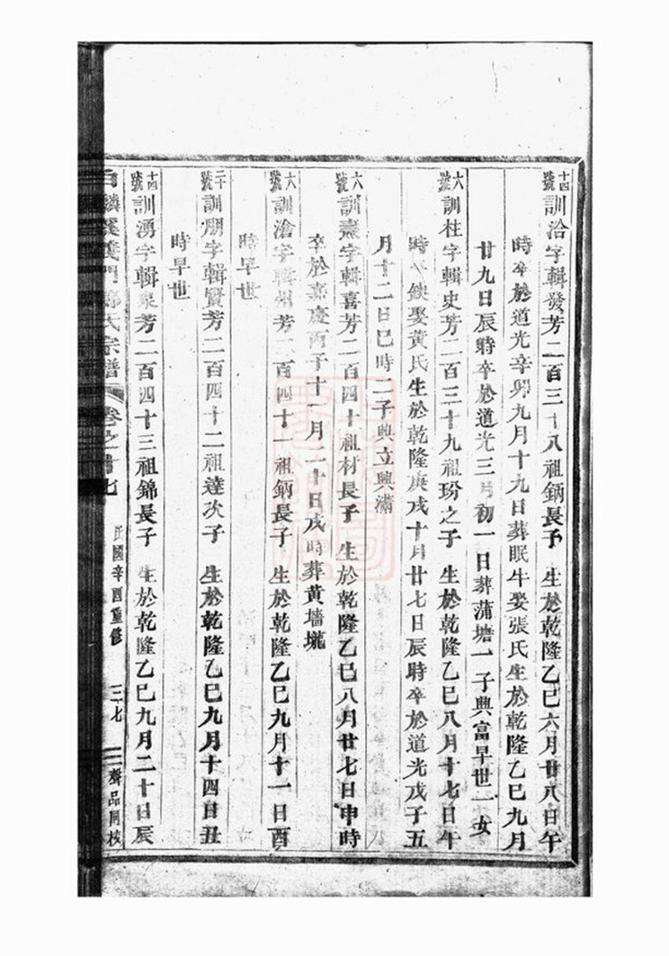 十四號訓洽字輯發芳二百三十八祖鈵長子 生於乾隆乙巳六月廿八日午
時卒於道光辛卯九月十九日葬眠牛娶張氏生於乾隆乙巳九月
廿九日辰時卒於道光三月初一日葬蒲塘一子興富早世一女
六號訓柱字輯史芳二百三十九祖玢之子 生於乾隆乙巳八月十七日午
時卒缺娶黃氏生於乾隆庚戌十月廿七日辰時卒於道光戊子五
月十二日巳時二子興立興滿
六號訓燾字輯喜芳二百四十祖材長子 生於乾隆乙巳八月廿七日申時
卒於嘉慶丙子十一月二十日戌時葬黃墻壠
六號訓滄字輯州芳二百四十一祖鈵長子 生於乾隆乙巳九月十一日酉
時早世
二十號訓朋字輯賢芳二百四十二祖達次子 生於乾隆乙巳九月十四日丑
時早世
十四號訓湧字輯泉芳二百四十三祖錦長子 生於乾隆乙巳九月二十日辰
白麟溪義門鄭氏宗譜 卷之廿七 民國辛酉重修 三七 聲品同校